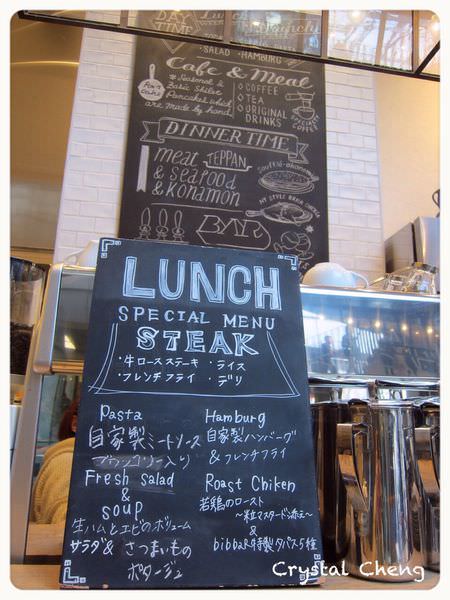 DAY
TIME
Lunch
SALAD ・ HAMBURG
Cafe & Meal
Seasonal &
Basic Skillet
Pancakes which
are made by hand.
COFFEE
TEA
ORIGINAL
DRINKS
SPECIALTY
COFFEE
DINNER TIME
meat TEPPAN
& SEAFOOD
& KONAMON
BAR
LUNCH
SPECIAL MENU
STEAK
・牛ロースステーキ ・ライス
・フレンチフライ ・デリ
Pasta
自家製ミートソース
ブロッコリー入り
Fresh Salad
&
soup
生ハムとエビのボリューム
サラダ& さつまいもの
ポタージュ
Hamburg
自家製ハンバーグ
&フレンチフライ
Roast Chiken
若鶏のロースト
〜粒マスタード添え〜
&
bibbaR特製タパス5種
Crystal Cheng